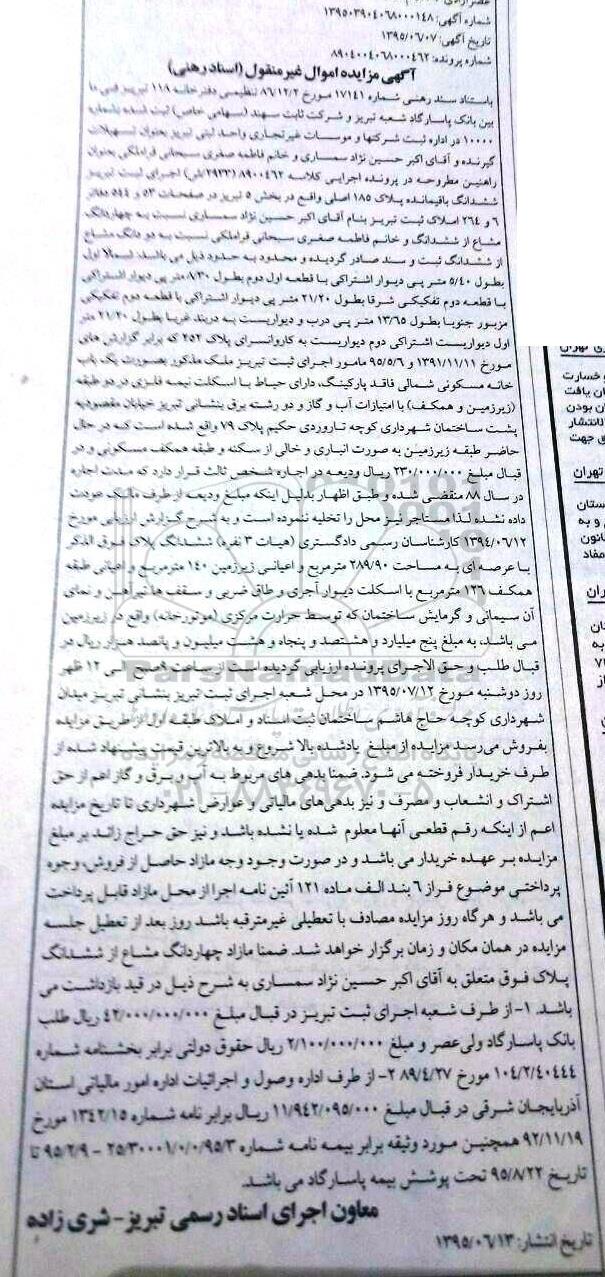 شماره آگهی: ۱۳۹۵۰۳۹۰۴۰۶۸۰۰۰۱۴۸
تاریخ آگهی: ۱۳۹۵/۰۶/۰۷
شماره پرونده: ۸۹۰۴۰۰۴۰۶۸۰۰۰۴۶۲
آگهی مزایده اموال غیر منقول (اسناد رهنی)
باستناد سند رهنی شماره ۱۷۱۴۱ مورخ ۸۶/۱۲/۲ تنظیمی دفترخانه ۱۱۸ تبریز فی ما
بین بانک پاسارگاد شعبه تبریز و شرکت ثابت سهند (سهامی خاص) ثبت شده بشماره
۱۰۰۰۰ در اداره ثبت شرکتها و موسسات غیرتجاری واحد ثبتی تبریز بعنوان تسهیلات
گیرنده و آقای اکبر حسین نژاد سمساری و خانم فاطمه صغری سبحانی قراملکی بعنوان
راهنین مطروحه در پرونده اجرایی کلاسه ۸۹۰۰۴۶۲ اجرای ثبت تبریز
ششدانگ باقیمانده پلاک ۱۸۵ اصلی واقع در بخش ۵ تبریز در صفحات ۵۳ و ۵۴۴ دفاتر
۶ و ۲۶۴ املاک ثبت تبریز بنام آقای اکبر حسین نژاد سمساری نسبت به چهاردانگ
مشاع از ششدانگ و خانم فاطمه صغری سبحانی قراملکی نسبت به دو دانگ مشاع
از ششدانگ ثبت و سند صادر گردیده و محدود به حدود ذیل می باشد: شمالا اول
بطول ۵/۴۰ متر پی دیوار اشتراکی با قطعه اول دوم بطول ۸/۳۰ متر پی دیوار اشتراکی
با قطعه دوم تفکیکی شرقا بطول ۲۱/۲۰ متر پی دیوار اشتراکی با قطعه دوم تفکیکی
مزبور جنوبا بطول ۱۳/۶۵ متر پی درب و دیواریست به دربند غربا بطول ۲۱/۲۰ متر
اول دیواریست اشتراکی دوم دیواریست به کاروانسرای پلاک ۲۵۲ که برابر گزارش های
مورخ ۱۳۹۱/۱۱/۱۱ و ۹۵/۵/۶ مامور اجرای ثبت تبریز ملک مذکور بصورت یک باب
خانه مسکونی شمالی فاقد پارکینگ، دارای حیاط با اسکلت نیمه فلزی در دو طبقه
(زیرزمین و همکف) با امتیازات آب و گاز و دو رشته برق بنشانی تبریز خیابان مقصودیه
پشت ساختمان شهرداری کوچه تاروردی حکیم پلاک ۷۹ واقع شده است که در حال
حاضر طبقه زیرزمین به صورت انباری و خالی از سکنه و طبقه همکف مسکونی و در
قبال مبلغ ۲۳۰/۰۰۰/۰۰۰ ریال ودیعه در اجاره شخص ثالث قرار دارد که مدت اجاره
در سال ۸۸ منقضی شده و طبق اظهار بدلیل اینکه مبلغ ودیعه از طرف مالک عودت
داده نشده لذا مستاجر نیز محل را تخلیه ننموده است و به شرح گزارش ارزیابی مورخ
۱۳۹۴/۰۶/۱۲ کارشناسان رسمی دادگستری (هیات ۳ نفره) ششدانگ پلاک فوق الذکر
با عرصه ای به مساحت ۲۸۹/۹۰ مترمربع و اعیانی زیرزمین ۱۴۰ مترمربع و اعیانی طبقه
همکف ۱۳۶ مترمربع با اسکلت دیوار آجری و طاق ضربی و سقف ها تیرآهن و نمای
آن سیمانی و گرمایش ساختمان که توسط حرارت مرکزی (موتورخانه) واقع در زیرزمین
می باشد، به مبلغ پنج میلیارد و هشتصد و پنجاه و هشت میلیون و پانصد هزار ریال در
قبال طلب و حق الاجرای پرونده ارزیابی گردیده است از ساعت ۹ صبح الی ۱۲ ظهر
روز دوشنبه مورخ ۱۳۹۵/۰۷/۱۲ در محل شعبه اجرای ثبت تبریز بنشانی تبریز میدان
شهرداری کوچه حاج هاشم ساختمان ثبت اسناد و املاک طبقه اول از طریق مزایده
بفروش می‌رسد مزایده از مبلغ یادشده بالا شروع و به بالاترین قیمت پیشنهاد شده از
طرف خریدار فروخته می شود. ضمنا بدهی های مربوط به آب و برق و گاز اعم از حق
اشتراک و انشعاب و مصرف و نیز بدهی‌های مالیاتی و عوارض شهرداری تا تاریخ مزایده
اعم از اینکه رقم قطعی آنها معلوم شده یا نشده باشد و نیز حق حراج زائد بر مبلغ
مزایده بر عهده خریدار می باشد و در صورت وجود وجه مازاد حاصل از فروش، وجوه
پرداختی موضوع فراز ۶ بند الف ماده ۱۲۱ آئین نامه اجرا از محل مازاد قابل پرداخت
می باشد و هرگاه روز مزایده مصادف با تعطیلی غیرمترقبه باشد روز بعد از تعطیل جلسه
مزایده در همان مکان و زمان برگزار خواهد شد. ضمنا مازاد چهاردانگ مشاع از ششدانگ
پلاک فوق متعلق به آقای اکبر حسین نژاد سمساری به شرح ذیل در قید بازداشت می
باشد. ۱- از طرف شعبه اجرای ثبت تبریز در قبال مبلغ ۴۲/۰۰۰/۰۰۰/۰۰۰ ریال طلب
بانک پاسارگاد ولی‌عصر و مبلغ ۲/۱۰۰/۰۰۰/۰۰۰ ریال حقوق دولتی برابر بخشنامه شماره
۱۰۴/۲/۴۰۴۴۴ مورخ ۸۹/۴/۲۷ ۲- از طرف اداره وصول و اجرائیات اداره امور مالیاتی استان
آذربایجان شرقی در قبال مبلغ ۱۱/۹۴۲/۰۹۵/۰۰۰ ریال برابر نامه شماره ۱۳۴۲/۱۵ مورخ
۹۲/۱۱/۱۹ همچنین مورد وثیقه برابر بیمه نامه شماره ۲۵/۳۰۰۰۱/۰/۰/۹۵/۳ - ۹۵/۲/۹ تا
تاریخ ۹۵/۸/۲۲ تحت پوشش بیمه پاسارگاد می باشد.
معاون اجرای اسناد رسمی تبریز - شری زاده
تاریخ انتشار: ۱۳۹۵/۰۶/۱۳
ParsNamadData
پایگاه اطلاع رسانی مناقصه و مزایده
۰۲۱-۸۸۳۴۹۶۷۰-۵
و خسارت
ان یافت
ن بودن
تهران
ستان
و به
قانون
مفاد